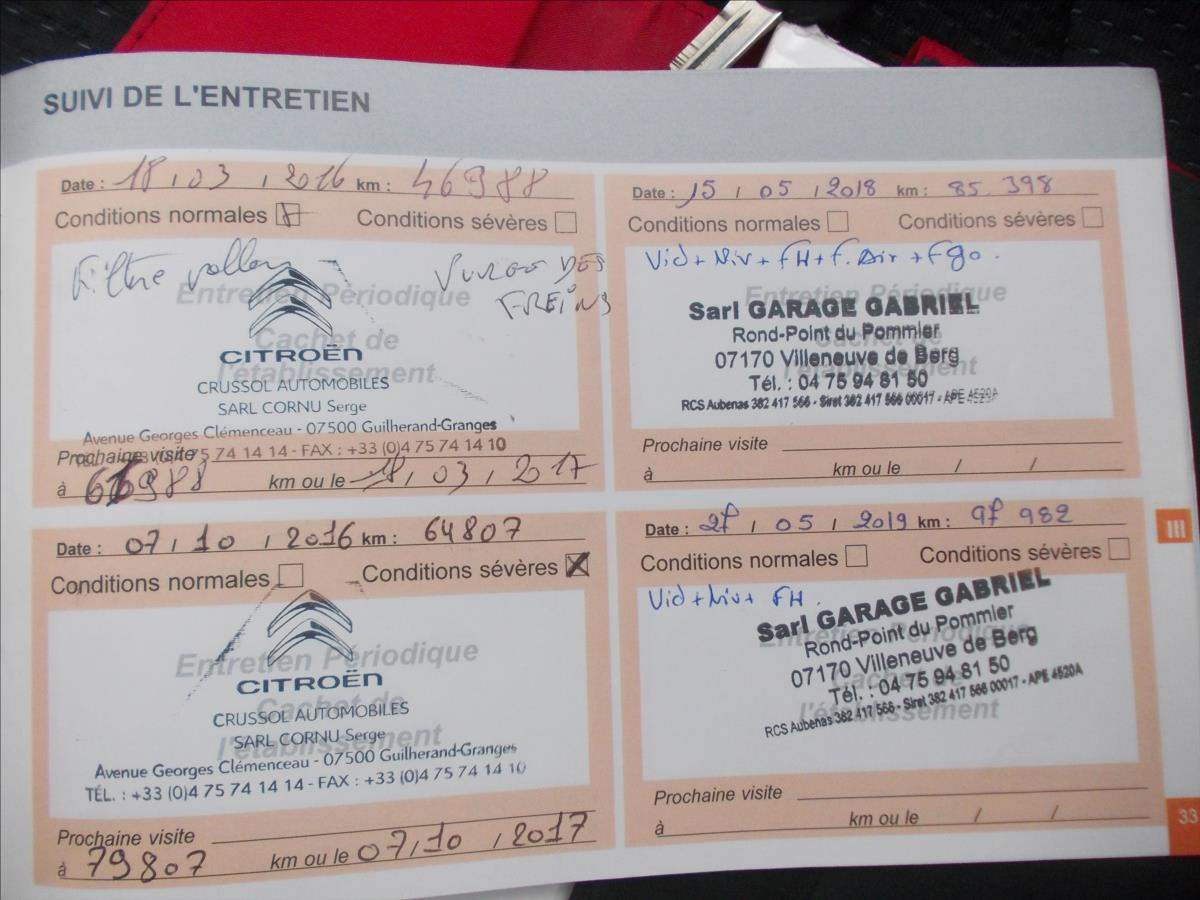 SUIVI DE L'ENTRETIEN
Date : 18 / 03 / 2016 km : 46988
Conditions normales Conditions sévères
Filtre pollen PURGE DES
FREINS
Entretien Périodique
Cachet de
l'établissement
CITROËN
CRUSSOL AUTOMOBILES
SARL CORNU Serge
Avenue Georges Clémenceau - 07500 Guilherand-Granges
TÉL. : +33 (0)4 75 74 14 14 - FAX : +33 (0)4 75 74 14 10
Prochaine visite
à 66988 km ou le 18 / 03 / 2017
Date : 07 / 10 / 2016 km : 64807
Conditions normales Conditions sévères
Entretien Périodique
Cachet de
l'établissement
CITROËN
CRUSSOL AUTOMOBILES
SARL CORNU Serge
Avenue Georges Clémenceau - 07500 Guilherand-Granges
TÉL. : +33 (0)4 75 74 14 14 - FAX : +33 (0)4 75 74 14 10
Prochaine visite
à 79807 km ou le 07 / 10 / 2017
Date : 15 / 05 / 2018 km : 85 398
Conditions normales Conditions sévères
Vid + Niv + FH + F. Air + Fgo.
Entretien Périodique
Cachet de
l'établissement
Sarl GARAGE GABRIEL
Rond-Point du Pommier
07170 Villeneuve de Berg
Tél. : 04 75 94 81 50
RCS Aubenas 382 417 566 - Siret 382 417 566 00017 - APE 4520A
Prochaine visite
à km ou le / /
Date : 27 / 05 / 2019 km : 97 982
Conditions normales Conditions sévères
Vid + Niv + FH.
Entretien Périodique
Cachet de
l'établissement
Sarl GARAGE GABRIEL
Rond-Point du Pommier
07170 Villeneuve de Berg
Tél. : 04 75 94 81 50
RCS Aubenas 382 417 566 - Siret 382 417 566 00017 - APE 4520A
Prochaine visite
à km ou le / /
III
33